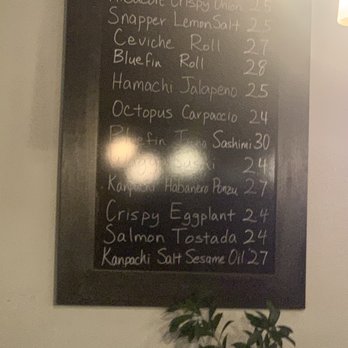 Crispy Onion 25
Snapper Lemon Salt 25
Ceviche Roll 27
Bluefin Roll 28
Hamachi Jalapeno 25
Octopus Carpaccio 24
Bluefin Tuna Sashimi 30
24
Kanpachi Habanero Ponzu 27
Crispy Eggplant 24
Salmon Tostada 24
Kanpachi Salt Sesame Oil 27